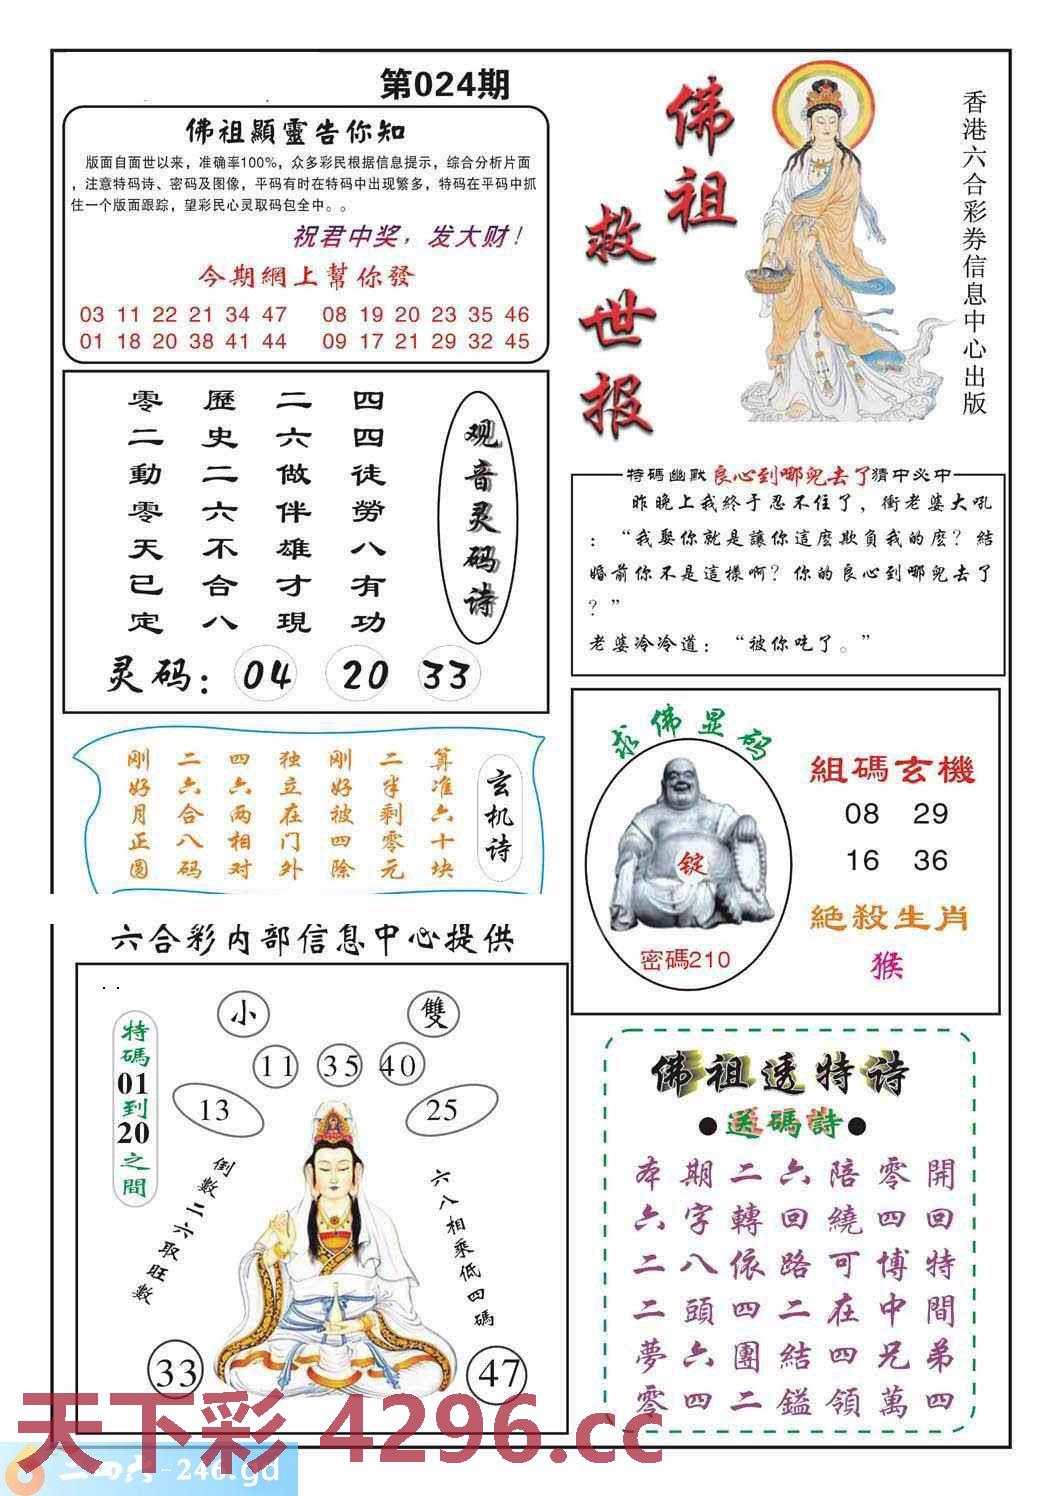 第024期
佛祖顯靈告你知
版面自面世以来，准确率100%，众多彩民根据信息提示，综合分析片面
，注意特码诗、密码及图像，平码有时在特码中出现繁多，特码在平码中抓
住一个版面跟踪，望彩民心灵取码包全中。。
祝君中奖，发大财！
今期網上幫你發
03 11 22 21 34 47 08 19 20 23 35 46
01 18 20 38 41 44 09 17 21 29 32 45
佛祖
救世报
香港六合彩券信息中心出版
观音灵码诗
四四徒勞八有功
二六做伴雄才現
歷史二六不合八
零二動零天已定
灵码：04 20 33
特碼幽默 良心到哪兒去了 猜中必中
昨晚上我終于忍不住了，衝老婆大吼
：“我娶你就是讓你這麽欺負我的麽？結
婚前你不是這樣啊？你的良心到哪兒去了
？”
老婆冷冷道：“被你吃了。”
玄机诗
算准六十块
二半剩零元
刚好被四除
独立在门外
四六两相对
二六合八码
刚好月正圆
求佛显码
锭
密碼210
組碼玄機
08 29
16 36
絕殺生肖
猴
六合彩内部信息中心提供
特碼01到20之間
小
雙
11
35
40
13
25
倒數二六取旺數
六八相乘低四碼
33
47
佛祖透特诗
●送碼詩●
開回特間弟四
零四博中兄萬
陪繞可在四領
六回路二結鎰
二轉依四團二
期字八頭六四
本六二二夢零
天下彩 4296.cc
二四六-246.gd